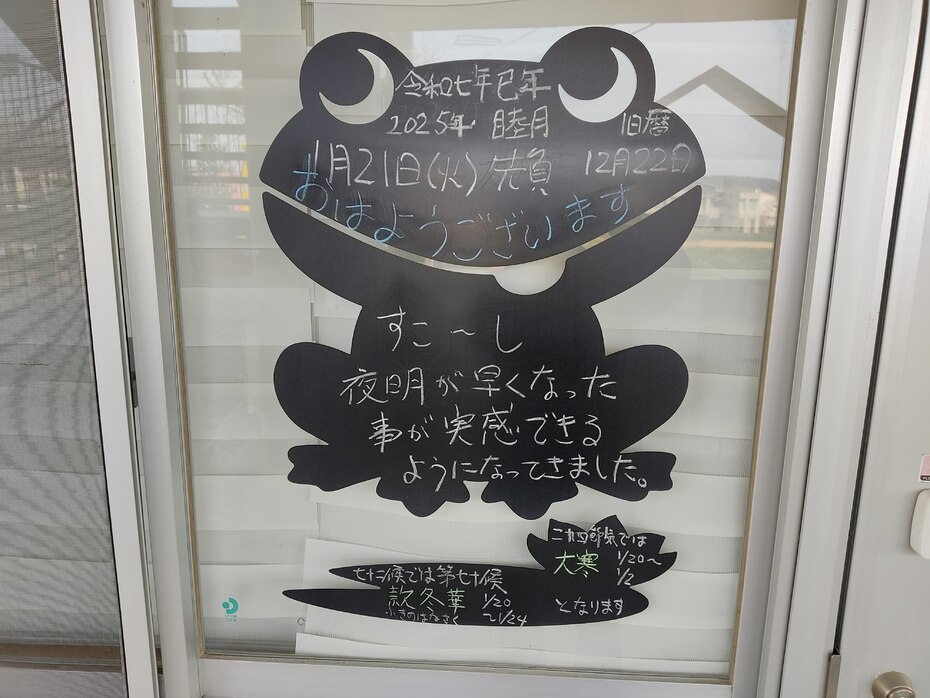 令和七年巳年
2025年 睦月 旧暦
1月21日(火) 先負 12月22日
おはようございます
すこ～し
夜明が早くなった
事が実感できる
ようになってきました。
二十四節気では
大寒 1/20～
1/2
となります
七十二候では第七十候
款冬華 1/20
ふきのはなさく ～1/24